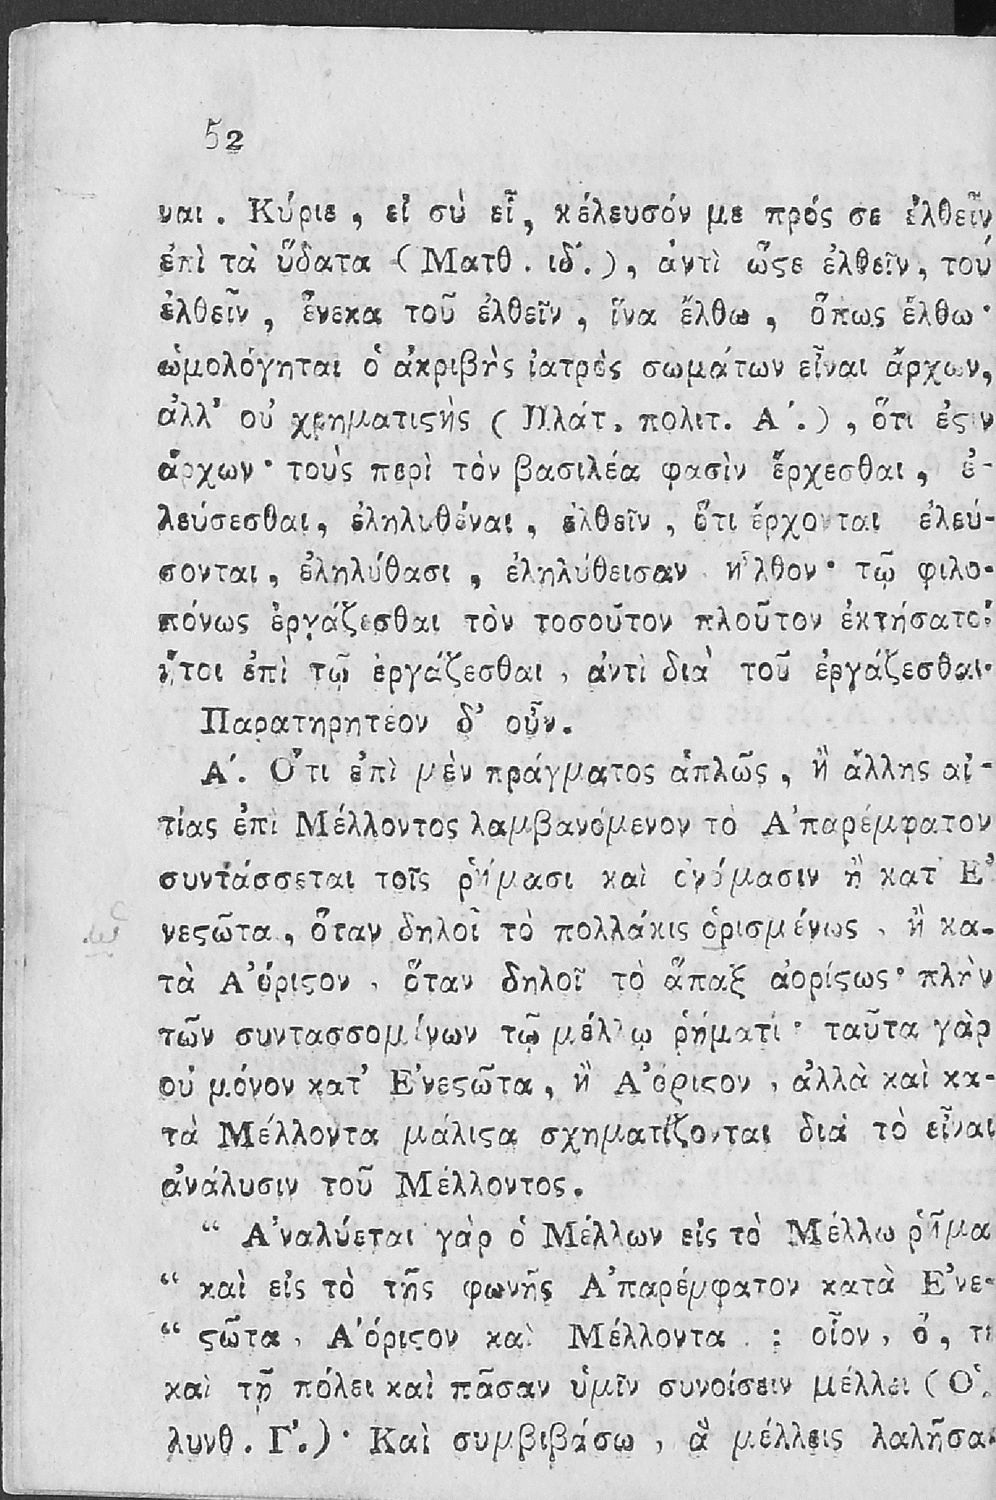 52
ναι . Κύριε , εἰ σὺ εἶ , κέλευσόν με πρός σε ἐλθεῖν
ἐπὶ τὰ ὕδατα ( Ματθ . ιδ΄. ) , ἀντὶ ὥςε ἐλθεῖν , τοῦ
ἐλθεῖν , ἕνεκα τοῦ ἐλθεῖν , ἵνα ἔλθω , ὅπως ἔλθω ·
ὡμολόγηται ὁ ἀκριβὴς ἰατρὸς σωμάτων εἶναι ἄρχων,
ἀλλ' οὐ χρηματιςὴς ( Πλάτ. πολιτ. Α΄. ) , ὅτι ἐςὶν
ἄρχων · τοὺς περὶ τὸν βασιλέα φασὶν ἔρχεσθαι , ἐ-
λεύσεσθαι , ἐληλυθέναι , ἐλθεῖν , ὅτι ἔρχονται ἐλεύ-
σονται , ἐληλύθασι , ἐληλύθεισαν ἦλθον · τῷ φιλο-
πόνως ἐργάζεσθαι τὸν τοσοῦτον πλοῦτον ἐκτήσατο·
ἤτοι ἐπὶ τῷ ἐργάζεσθαι , ἀντὶ διὰ τοῦ ἐργάζεσθαι·
Παρατηρητέον δ' οὖν.
Α΄. Ὅτι ἐπὶ μὲν πράγματος ἁπλῶς , ἢ ἄλλης αἰ-
τίας ἐπὶ Μέλλοντος λαμβανόμενον τὸ Ἀπαρέμφατον
συντάσσεται τοῖς ῥήμασι καὶ ὀνόμασιν ἢ κατ' Ἐ
νεςῶτα , ὅταν δηλοῖ τὸ πολλάκις ὁρισμένως , ἢ κα-
τὰ Ἀόριςον , ὅταν δηλοῖ τὸ ἅπαξ ἀορίςως · πλὴν
τῶν συντασσομένων τῷ μέλλω ῥήματι · ταῦτα γὰρ
οὐ μόνον κατ' Ἐνεςῶτα , ἢ Ἀόριςον , ἀλλὰ καὶ κα-
τὰ Μέλλοντα μάλιςα σχηματίζονται διὰ τὸ εἶναι
ἀνάλυσιν τοῦ Μέλλοντος .
“ Ἀναλύεται γὰρ ὁ Μέλλων εἰς τὸ Μέλλω ῥῆμα
“ καὶ εἰς τὸ τῆς φωνῆς Ἀπαρέμφατον κατὰ Ἐνε-
“ ςῶτα , Ἀόριςον καὶ Μέλλοντα : οἷον , ὅ , τι
καὶ τῇ πόλει καὶ πᾶσαν ὑμῖν συνοίσειν μέλλει ( Ὀ-
λυνθ . Γ΄. ) · Καὶ συμβιβάσω , ἃ μέλλεις λαλῆσα-